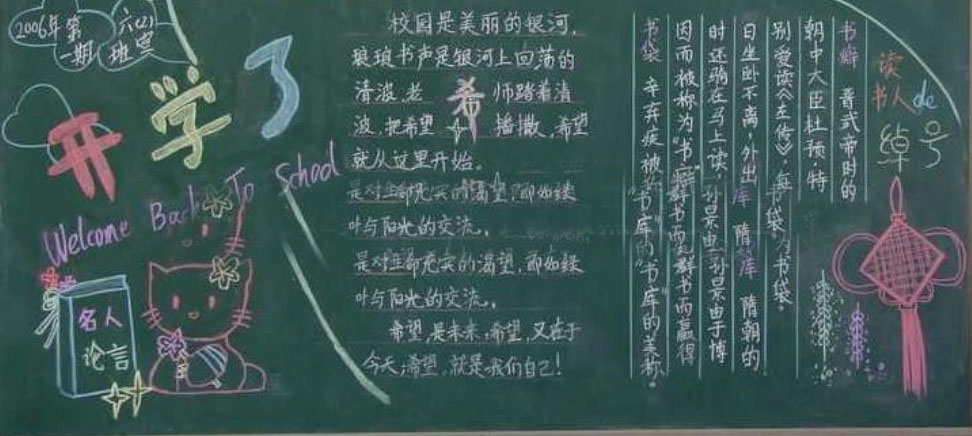 2006年第一期
六(2)班宣
开学了
Welcome Back To School
名人论言
校园是美丽的银河,
琅琅书声是银河上回荡的
清波,老 希 师踏着清
波,把希望 播撒,希望
就从这里开始。
是对生命充实的渴望,即如绿
叶与阳光的交流。
是对生命充实的渴望,即如绿
叶与阳光的交流。
希望,是未来,希望,又在于
今天,希望,就是我们自己!
读书人de绰号
书癖 晋武帝时的
朝中大臣杜预特
别爱读《左传》,每
日坐卧不离,外出
时还驮在马上读,
因而被称为"书
书袋
库 隋朝的
孙景由于博
群书而赢得
"书库"的美称。